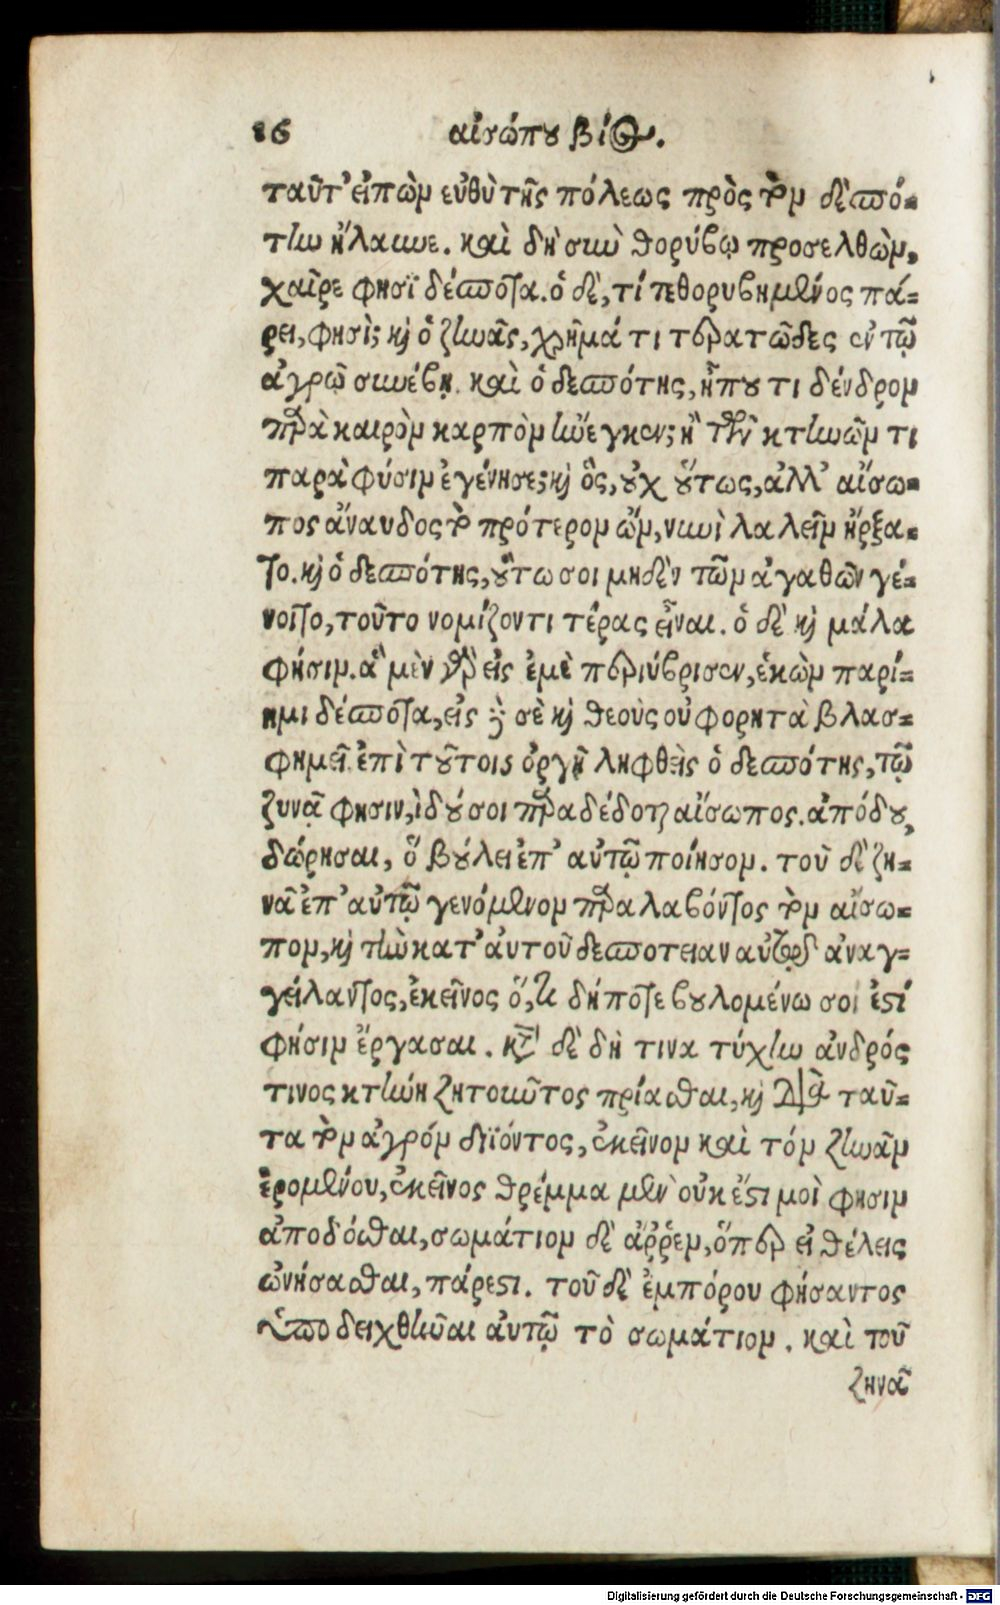 16 αἰσώπου βίος.
ταῦτ' εἰπὼν εὐθὺ τῆς πόλεως πρὸς τὸν δεσπό-
την ἤλαυνε. καὶ δὴ σὺν θορύβῳ προσελθὼν,
χαῖρε φησὶ δέσποτα. ὁ δὲ, τί τεθορυβημένος πά-
ρει, φησὶ; καὶ ὁ ζηνᾶς, χρῆμά τι τερατῶδες ἐν τῷ
ἀγρῷ συνέβη. καὶ ὁ δεσπότης, ἤπου τι δένδρον
παρὰ καιρὸν καρπὸν ἤνεγκεν; ἢ τῶν κτηνῶν τι
παρὰ φύσιν ἐγέννησε; καὶ ὃς, οὐχ οὕτως, ἀλλ' αἴσω-
πος ἄναυδος τὸ πρότερον ὤν, νυνὶ λαλεῖν ἤρξα-
το. καὶ ὁ δεσπότης, οὕτω σοι μηδὲν τῶν ἀγαθῶν γέ-
νοιτο, τοῦτο νομίζοντι τέρας εἶναι. ὁ δὲ καὶ μάλα
φήσιν. ἃ μὲν γὰρ εἰς ἐμὲ περιύβρισεν, ἑκὼν παρί-
ημι δέσποτα, εἰς δὲ σὲ καὶ θεοὺς οὐ φορητὰ βλασ-
φημεῖ. ἐπὶ τούτοις ὀργῇ ληφθεὶς ὁ δεσπότης, τῷ
ζυνᾷ φησιν, ἰδού σοι παραδέδοται αἴσωπος. ἀπόδου,
δώρησαι, ὃ βούλει ἐπ' αὐτῷ ποίησον. τοῦ δὲ ζη-
νᾶ ἐπ' αὐτῷ γενόμενον παραλαβόντος τὸν αἴσω-
πον, καὶ τὴν κατ' ἀυτοῦ δεσποτειαν αὐτῷ ἀναγ-
γείλαντος, ἐκεῖνος ὅ, τι δήποτε βουλομένω σοι ἐστί
φήσιν ἔργασαι. κατὰ δὲ δή τινα τύχην ἀνδρός
τινος κτήνη ζητοῦντος πρίασθαι, καὶ διὰ ταῦ-
τα τὸν ἀγρόν διϊόντος, ἐκεῖνον καὶ τόν ζηνᾶν
ἐρομένου, ἐκεῖνος θρέμμα μὲν οὐκ ἔστι μοὶ φησιν
ἀποδόσθαι, σωμάτιον δὲ ἄῤῥεν, ὅπερ εἰ θέλεις
ὠνήσασθαι, πάρεστι. τοῦ δὲ ἐμπόρου φήσαντος
ὑποδειχθῆναι ἀυτῷ τὸ σωμάτιον. καὶ τοῦ
ζηνᾶ
Digitalisierung gefördert durch die Deutsche Forschungsgemeinschaft - DFG